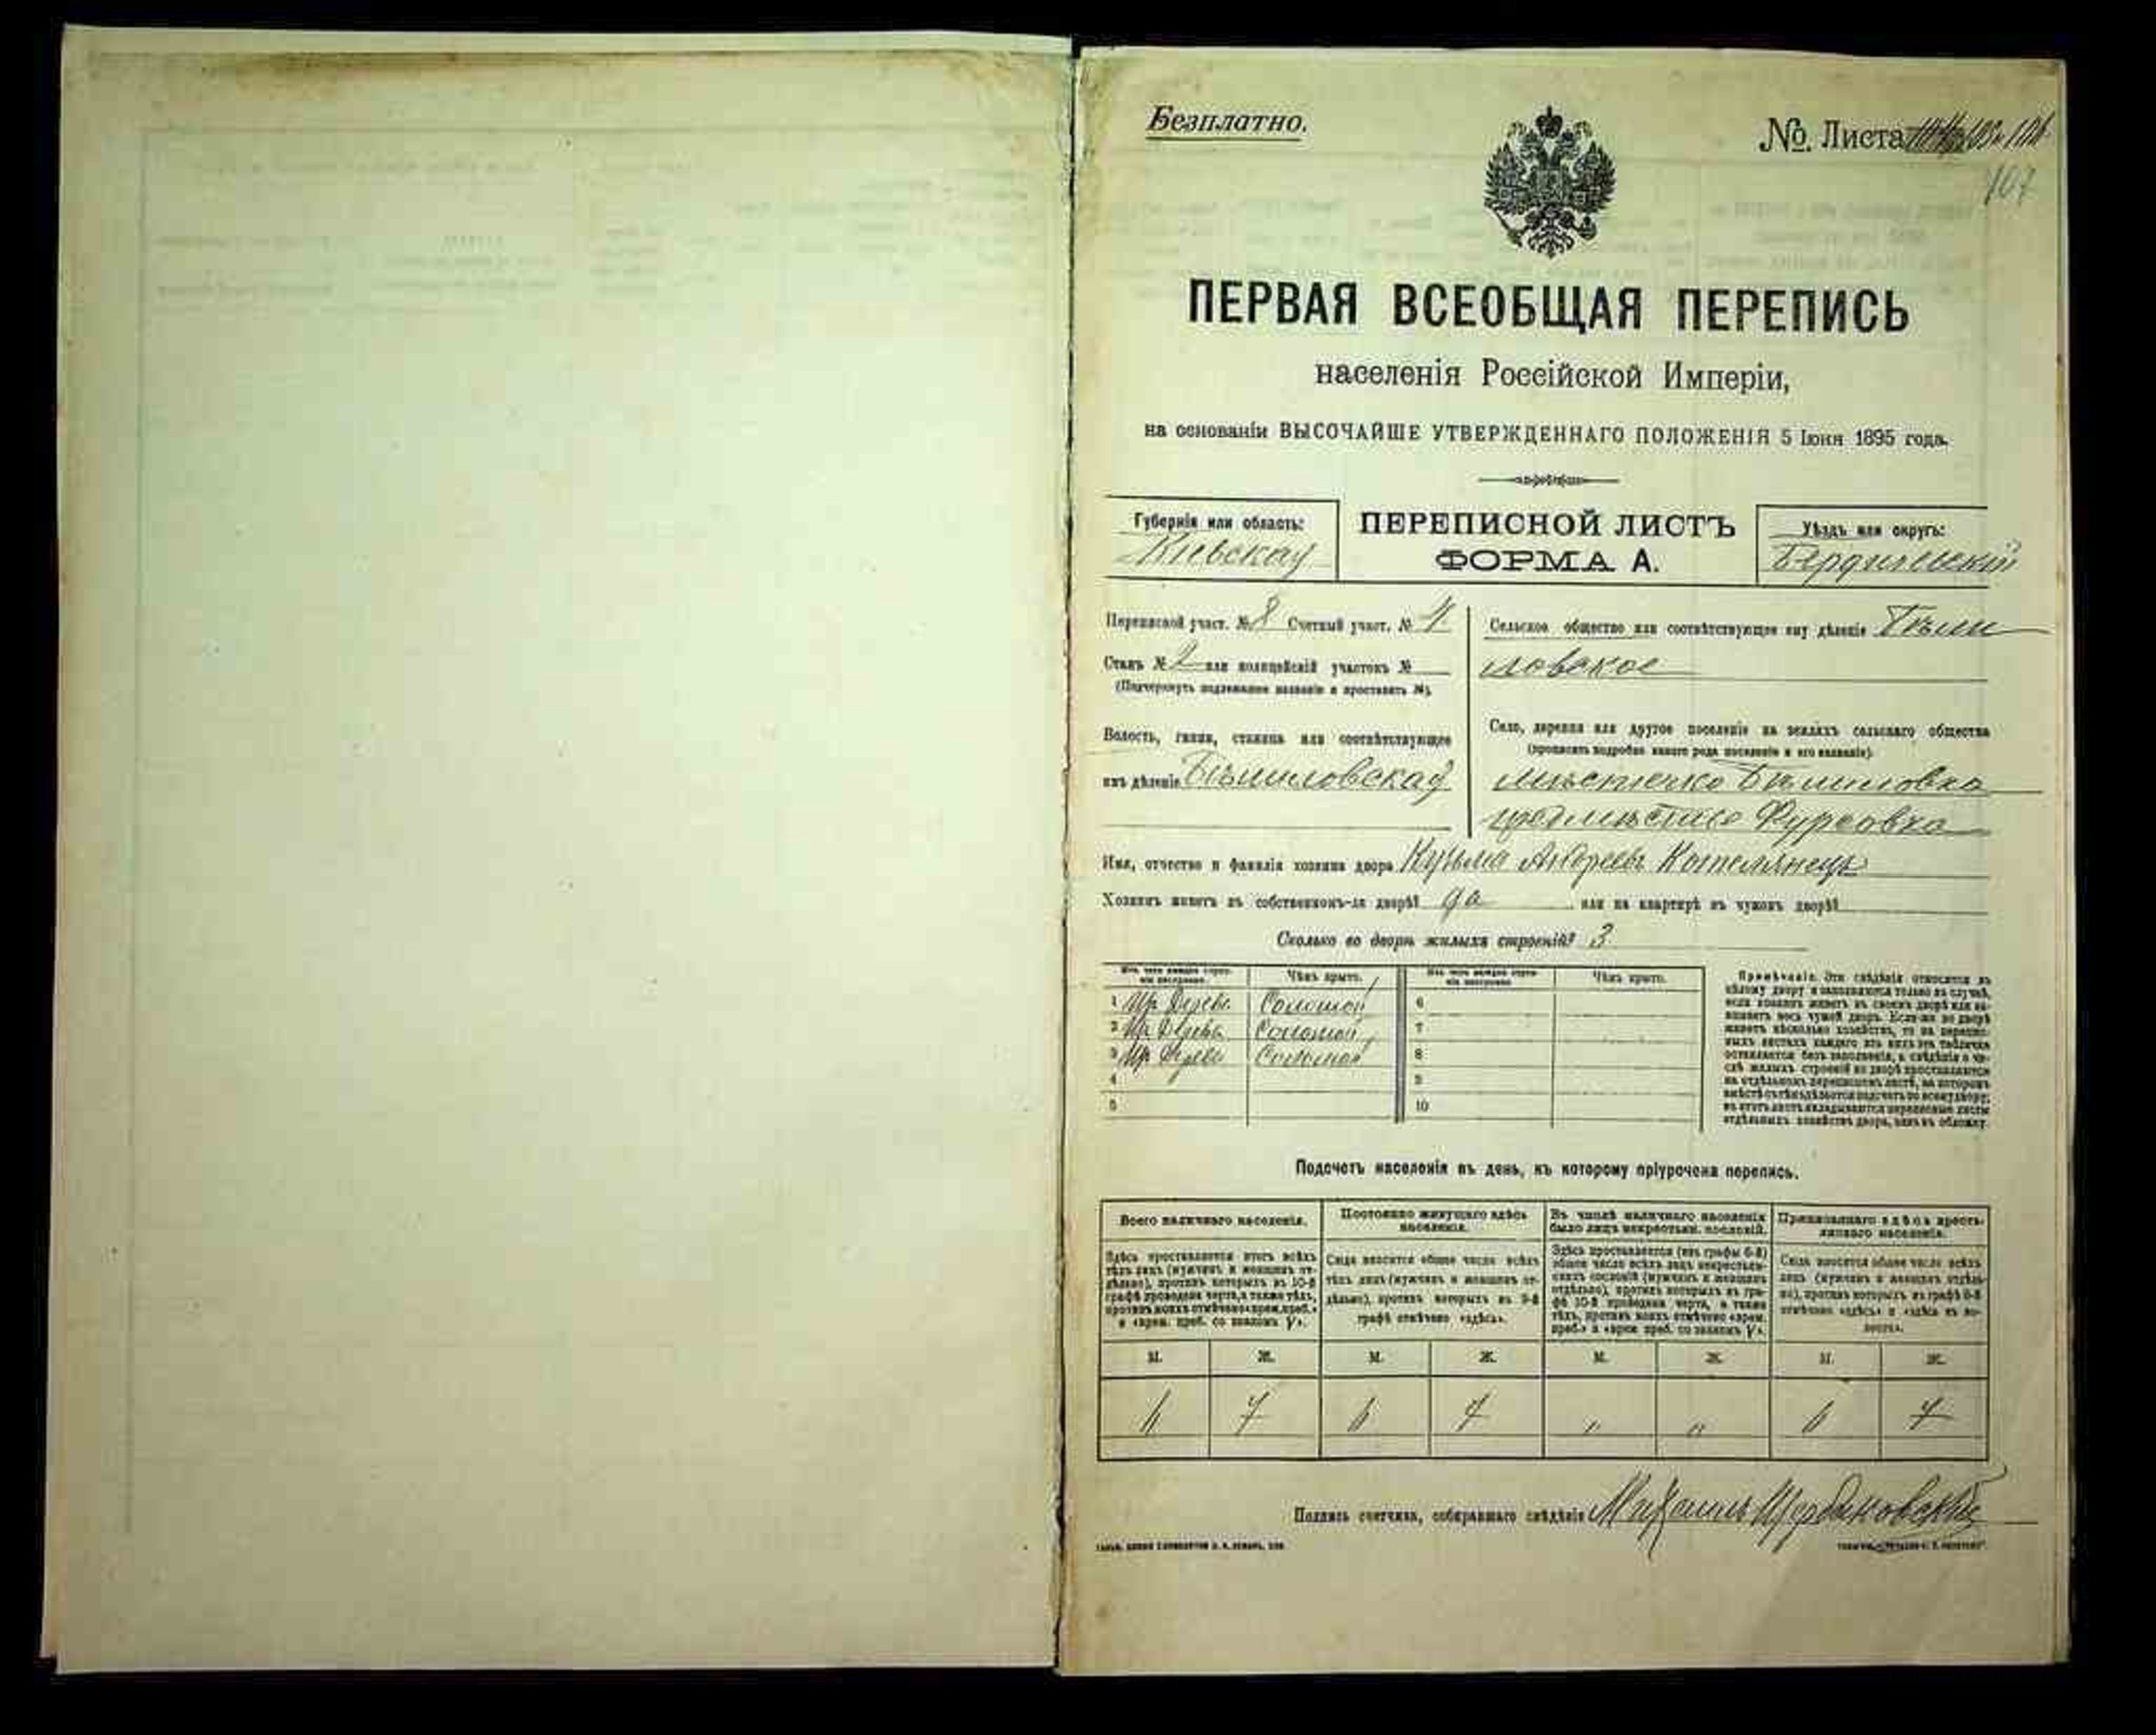 Безплатно.
№. Листа
107
ПЕРВАЯ ВСЕОБЩАЯ ПЕРЕПИСЬ
населенія Россійской Имперіи,
на основаніи ВЫСОЧАЙШЕ УТВЕРЖДЕННАГО ПОЛОЖЕНІЯ 5 Іюня 1895 года.
Губернія или область:
Кіевская
ПЕРЕПИСНОЙ ЛИСТЪ
ФОРМА А.
Уѣздъ или округъ:
Бердичевскій
Переписной участ. № 8 Счетный участ. № 4
Станъ № 2 или полицейскій участокъ №
(Подчеркнуть подлежащее названіе и проставить №).
Волость, гмина, станица или соотвѣтствующее
имъ дѣленіе Бѣлиловская
Сельское общество или соотвѣтствующее ему дѣленіе Бѣли
ловское
Село, деревня или другое поселеніе на земляхъ сельскаго общества
(прописать подробно какого рода поселеніе и его названіе).
мѣстечко Бѣлиловка
предмѣстье Фурсовка
Имя, отчество и фамилія хозяина двора Кузьма Андреевъ Котелянецъ
Хозяинъ живетъ въ собственномъ-ли дворѣ? да или на квартирѣ въ чужомъ дворѣ?
Сколько во дворѣ жилыхъ строеній? 3
Изъ чего каждое строеніе построено. Чѣмъ крыто. Изъ чего каждое строеніе построено. Чѣмъ крыто.
1 Соломой 6
2 Соломой 7
3 Соломой 8
4 9
5 10
Примѣчаніе. Эти свѣдѣнія относятся къ
цѣлому двору и заполняются только въ случаѣ,
если хозяинъ живетъ въ своемъ дворѣ или за-
нимаетъ весь чужой дворъ. Если-же во дворѣ
живетъ нѣсколько хозяйствъ, то на перепис-
ныхъ листахъ каждаго изъ нихъ эта табличка
оставляется безъ заполненія, а свѣдѣнія о чи-
слѣ жилыхъ строеній во дворѣ проставляются
на отдѣльномъ переписномъ листѣ, на которомъ
вмѣстѣ съ тѣмъ дѣлается подсчетъ по всему двору;
въ этотъ листъ вкладываются переписные листы
отдѣльныхъ хозяйствъ двора, какъ въ обложку.
Подсчетъ населенія въ день, къ которому пріурочена перепись.
Всего наличнаго населенія.
Здѣсь проставляется итогъ всѣхъ
тѣхъ лицъ (мужчинъ и женщинъ от-
дѣльно), противъ которыхъ въ 10-й
графѣ проведена черта, а также тѣхъ,
противъ коихъ отмѣчено «врем. преб.»
и «врем. преб. со знакомъ V».
Постоянно живущаго здѣсь
населенія.
Сюда вносится общее число всѣхъ
тѣхъ лицъ (мужчинъ и женщинъ от-
дѣльно), противъ которыхъ въ 9-й
графѣ отмѣчено «здѣсь».
Въ числѣ наличнаго населенія
было лицъ некрестьян. сословій.
Здѣсь проставляется (изъ графы 6-й)
общее число всѣхъ лицъ некрестьян-
скихъ сословій (мужчинъ и женщинъ
отдѣльно), противъ которыхъ въ гра-
фѣ 10-й проведена черта, а также
тѣхъ, противъ коихъ отмѣчено «врем.
преб.» и «врем. преб. со знакомъ V».
Приписаннаго здѣсь кресть-
янскаго населенія.
Сюда вносится общее число всѣхъ
лицъ (мужчинъ и женщинъ отдѣль-
но), противъ которыхъ въ графѣ 8-й
отмѣчено «здѣсь» и «здѣсь въ во-
лости».
М. Ж. М. Ж. М. Ж. М. Ж.
6 7 6 7 " " 6 7
Подпись счетчика, собиравшаго свѣдѣнія Михаилъ